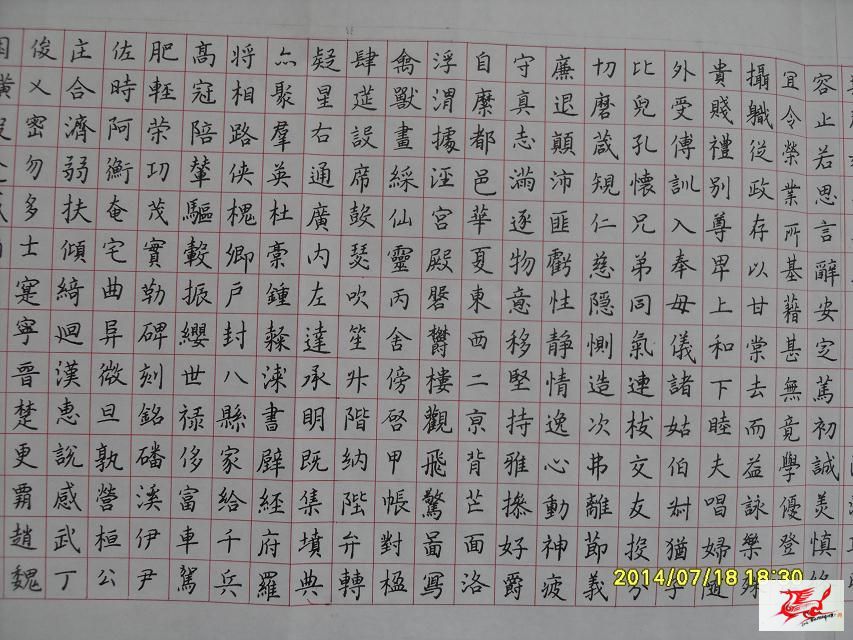 容止若思言辭安定篤初誠美慎
宜令榮業所基藉甚無竟學優登
攝職從政存以甘棠去而益詠樂殊
貴賤禮別尊卑上和下睦夫唱婦隨
外受傅訓入奉母儀諸姑伯叔猶子
比兒孔懷兄弟同氣連枝交友投分
切磨箴規仁慈隱惻造次弗離節義
廉退顛沛匪虧性靜情逸心動神疲
守真志滿逐物意移堅持雅操好爵
自糜都邑華夏東西二亰背芒面洛
浮渭據涇宮殿磐鬱樓觀飛驚圖寫
禽獸畫綵仙靈丙舍傍啓甲帳對楹
肆筵設席鼓瑟吹笙升階纳陛弁轉
疑星右通廣内左達承明既集墳典
亦聚羣英杜稾鍾隸漆書壁経府羅
将相路侠槐卿戶封八縣家給千兵
髙冠陪輦驅轂振纓世禄侈富車駕
肥輕荣功茂實勒碑刻銘磻溪伊尹
佐時阿衡奄宅曲阜微旦孰營桓公
匡合濟弱扶傾綺迴漢惠說感武丁
俊乂密勿多士寔寧晉楚更霸趙魏
2014/07/18 18:30